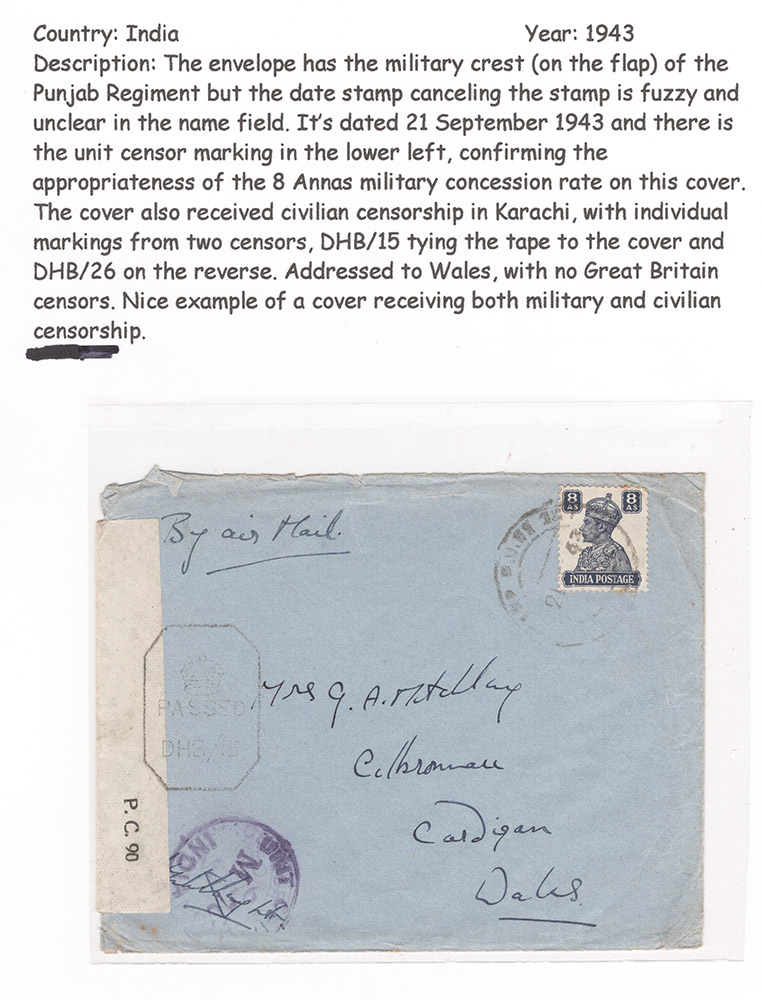 Country: India Year: 1943
Description: The envelope has the military crest (on the flap) of the
Punjab Regiment but the date stamp canceling the stamp is fuzzy and
unclear in the name field. It's dated 21 September 1943 and there is
the unit censor marking in the lower left, confirming the
appropriateness of the 8 Annas military concession rate on this cover.
The cover also received civilian censorship in Karachi, with individual
markings from two censors, DHB/15 tying the tape to the cover and
DHB/26 on the reverse. Addressed to Wales, with no Great Britain
censors. Nice example of a cover receiving both military and civilian
censorship.
8 AS 8 AS
INDIA POSTAGE
By air Mail.
PASSED
DHB/15
Mrs G. A.
Cardigan
Wales.
P.C. 90
UNIT